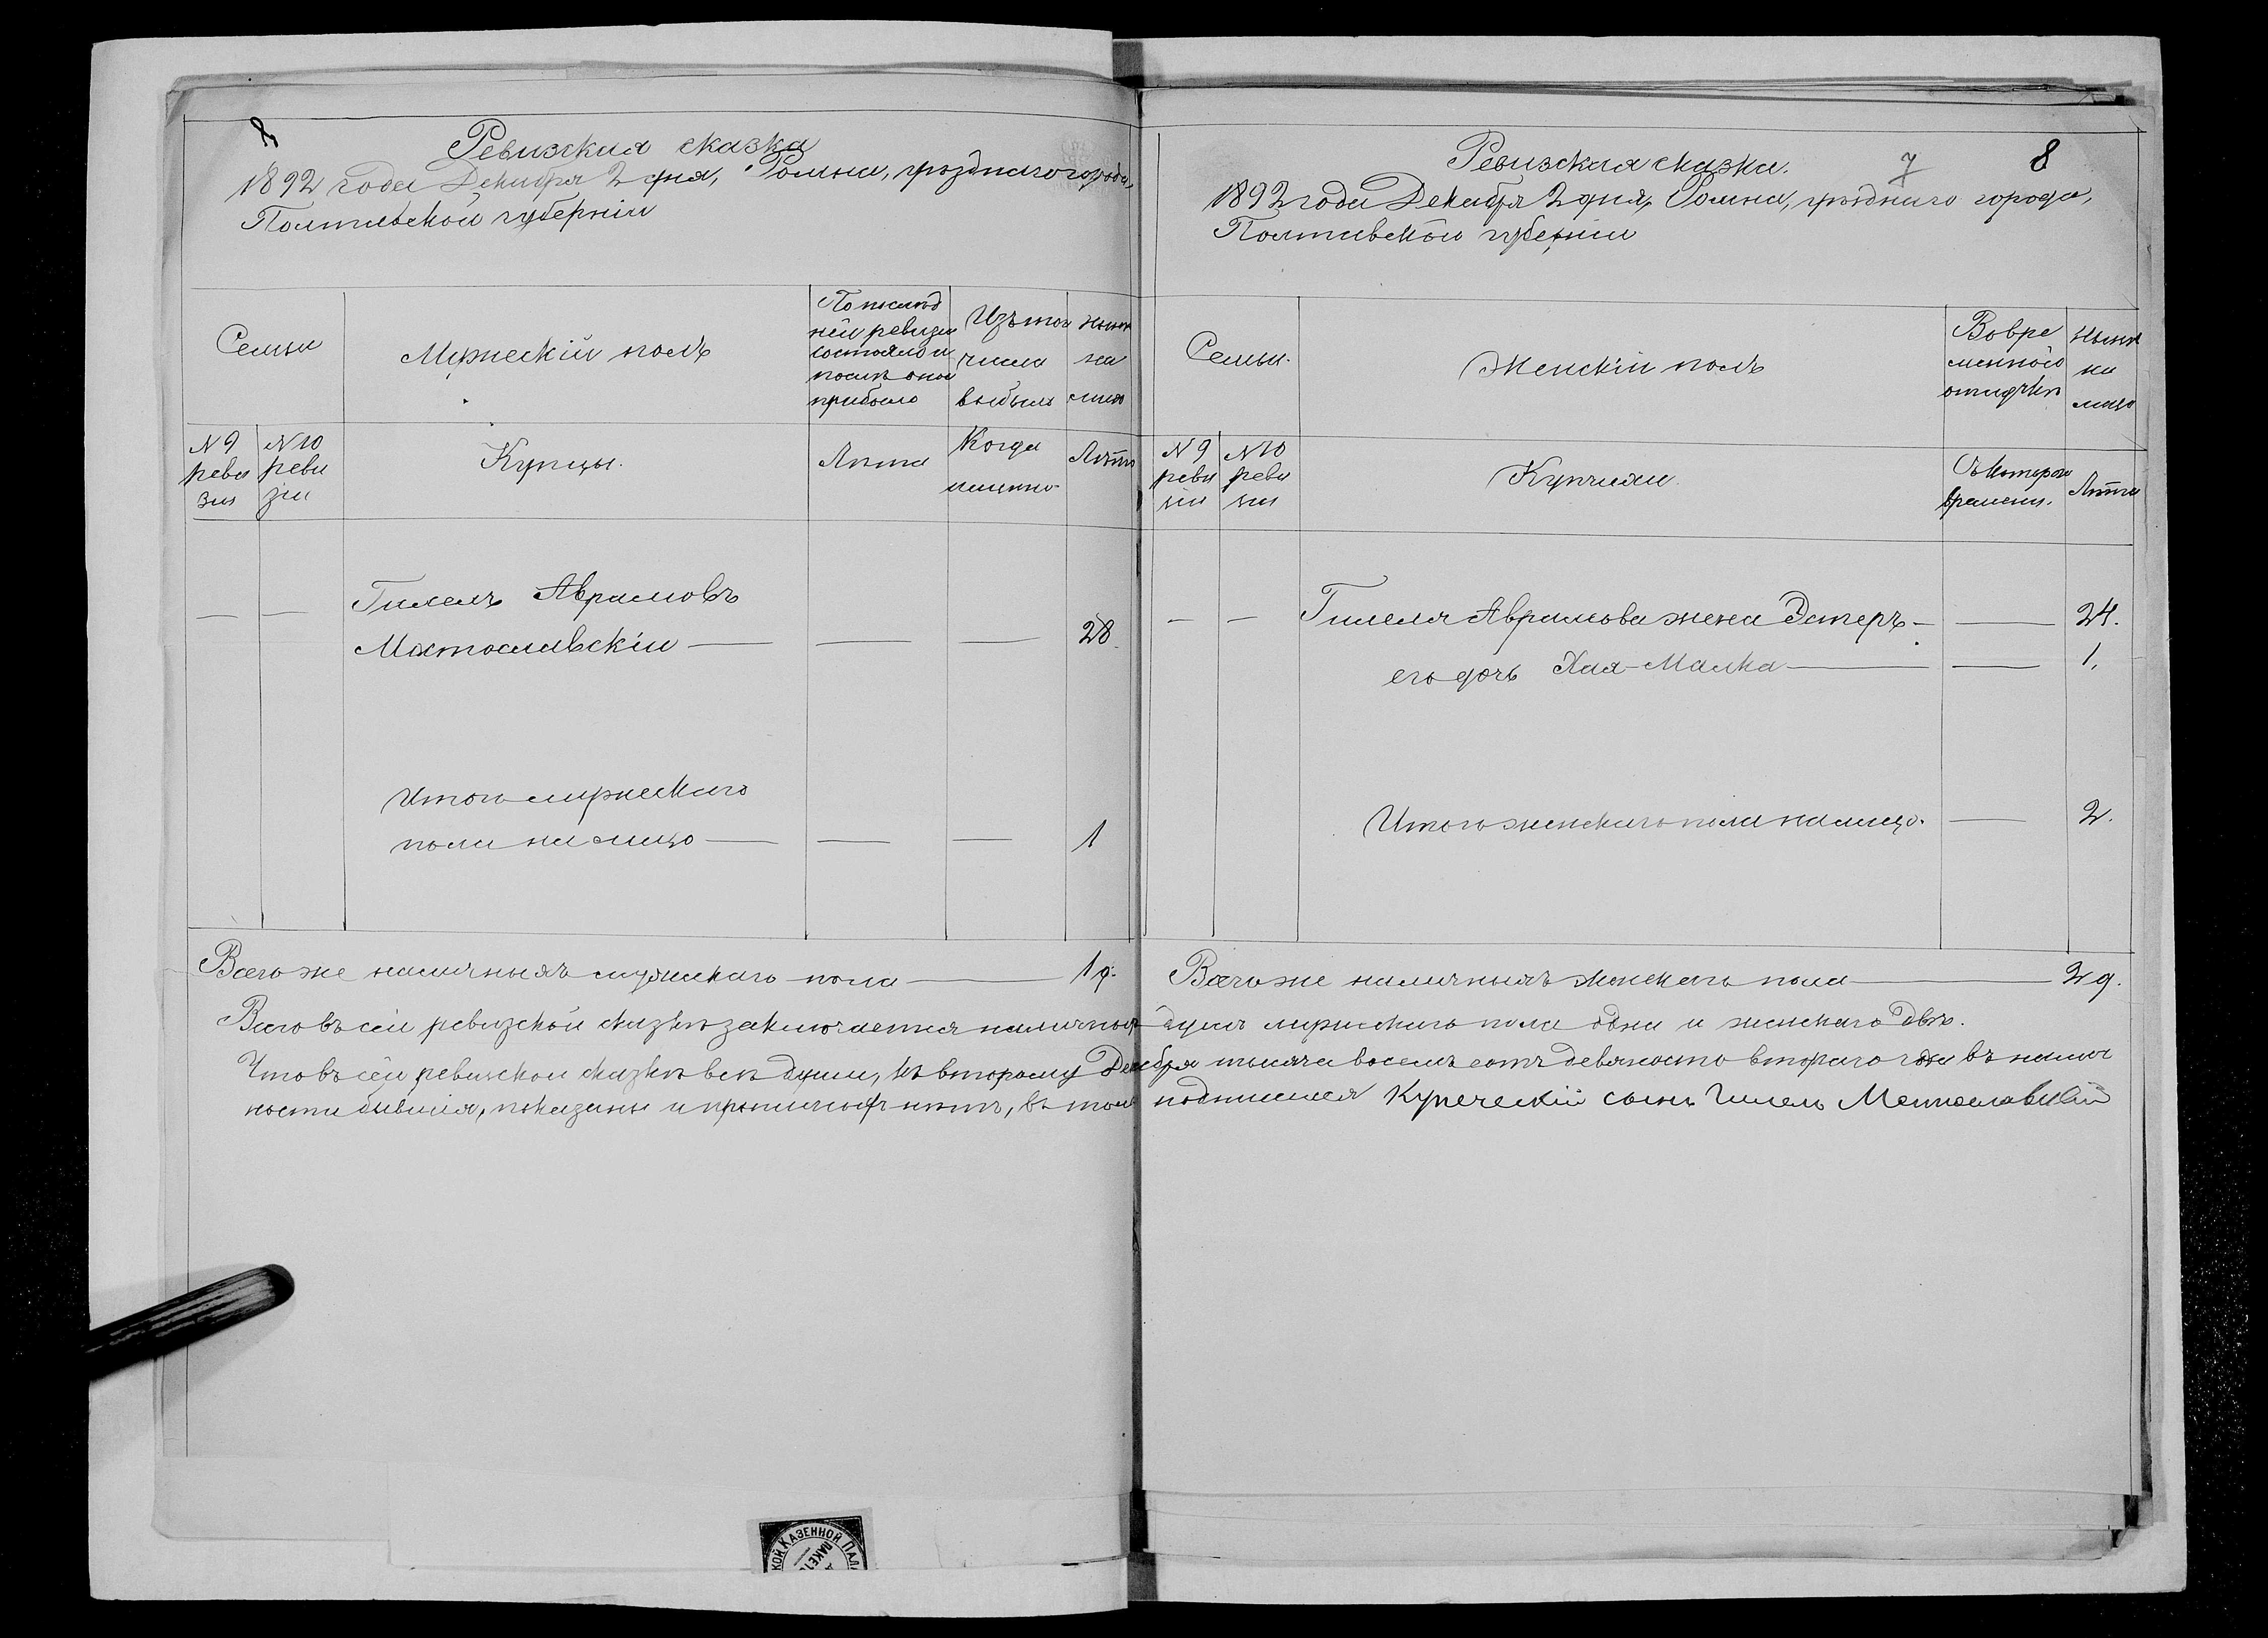 8
Ревизская сказка
1892 года Декабря 2 дня, Ромна, уѣзднаго города,
Полтавской губерніи
Семьи
Мужескій полъ
По послѣд
ней ревизіи
состояло и
послѣ оной
прибыло
Изъ того
числа
выбыло
нынѣ
на
лицо
№ 9
реви
зіи
№ 10
реви
зіи
Купцы.
Лѣта
Когда
именно
Лѣта
— — Гилель Аврамовъ
Мстославскій — — — 28
Итого мужескаго
пола на лицо — — — 1
Всего же наличныхъ мужескаго пола — 1 д.
7
8
Ревизская сказка.
1892 года Декабря 2 дня, Ромна, уѣзднаго города,
Полтавской губерніи
Семьи.
Женскій полъ
Во вре
менной
отлучкѣ
нынѣ
на
лицо
№ 9
реви
зіи
№ 10
реви
зіи
Купчихи
Съ котораго
времени.
Лѣта
— — Гилеля Аврамова жена Эстеръ — — 24.
его дочь Хая-Малка — — 1.
Итого женскаго пола на лицо. — 2.
Всего же наличныхъ женскаго пола — 2 д.
Всего въ сей ревизской сказкѣ заключается наличныхъ душъ мужескаго пола одна и женскаго двѣ.
Что въ сей ревизской сказкѣ всѣ души, къ второму Декабря тысяча восемь сотъ девяносто втораго года въ налич
ности бывшія, показаны и прописныхъ нѣтъ, въ томъ подписался Купеческій сынъ Гилель Мстославскій
КОЙ КАЗЕННОЙ ПАЛ
ПАКЕТ